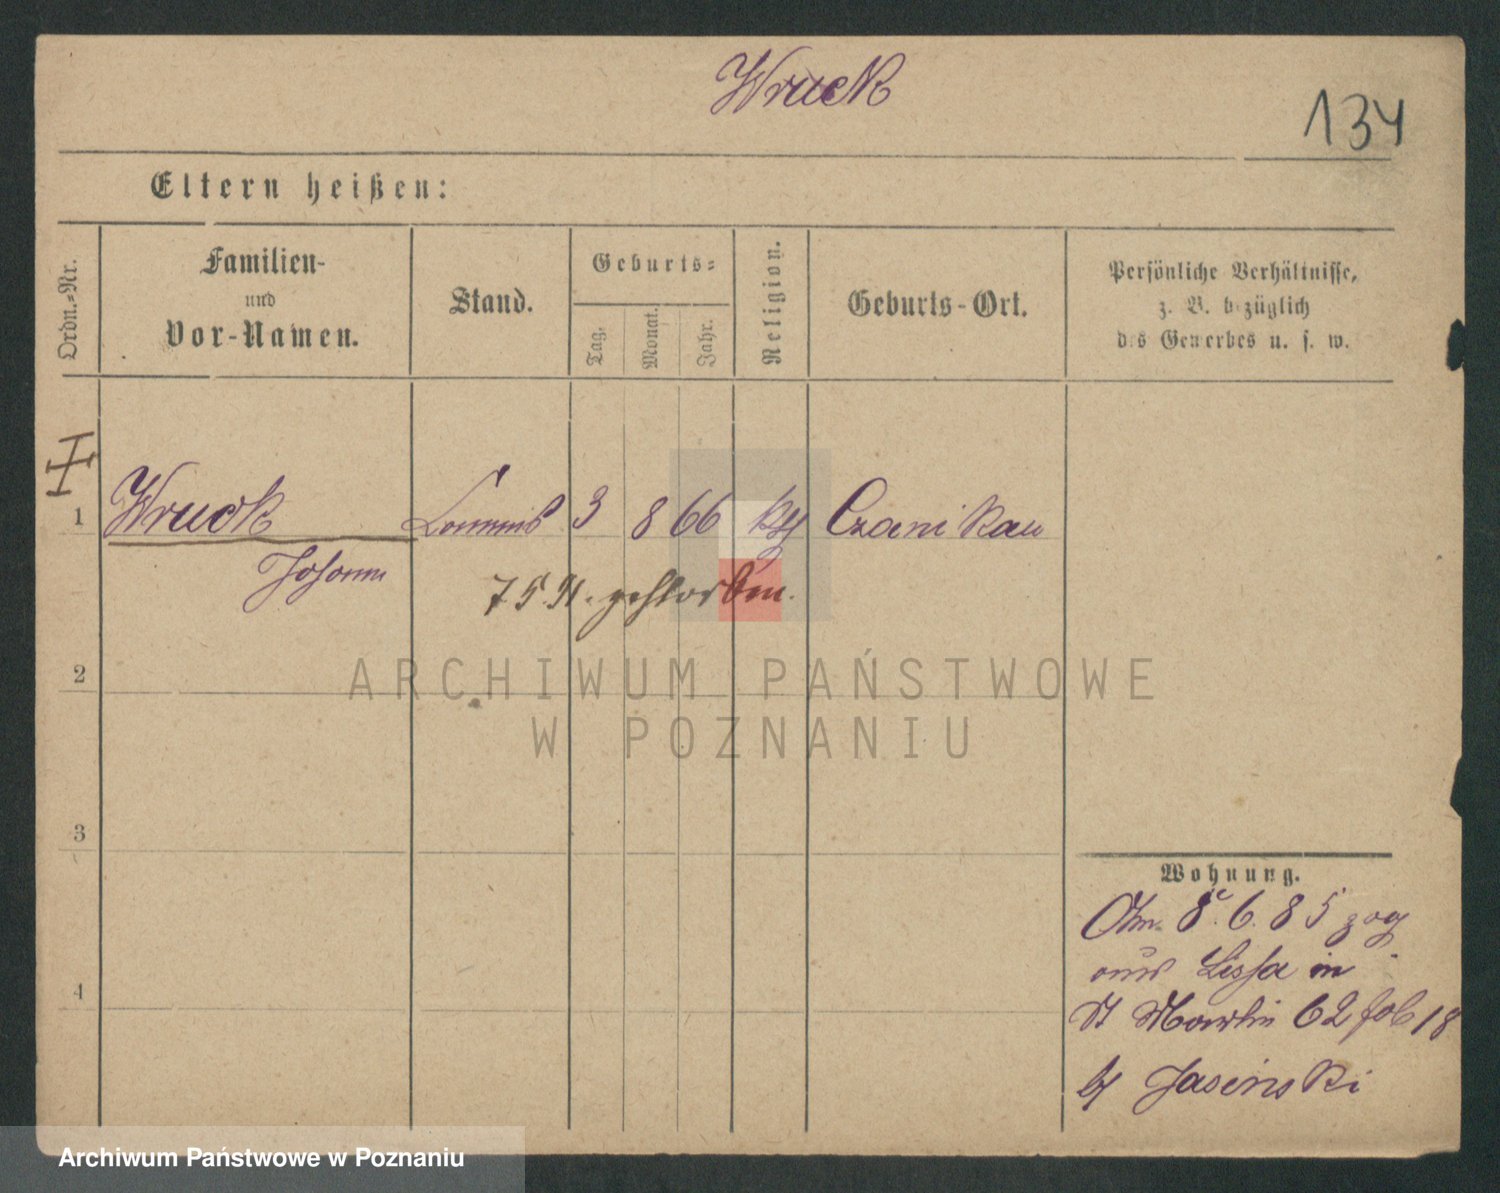 Wruck
134
Eltern heißen:
Ordn.-Nr.
Familien-
und
Vor-Namen.
Stand.
Geburts-
Tag.
Monat.
Jahr.
Religion.
Geburts-Ort.
Persönliche Verhältnisse,
z. B. bezüglich
des Gewerbes u. s. w.
1 Wruck Commis 3 8 66 kth Czarnikau
Johann
7 5 91. gestorben.
2
ARCHIWUM PAŃSTWOWE
W POZNANIU
3
4
Wohnung.
8. 6. 85 zog
aus Lissa in
St Martin 62
b/ Jasinski
Archiwum Państwowe w Poznaniu